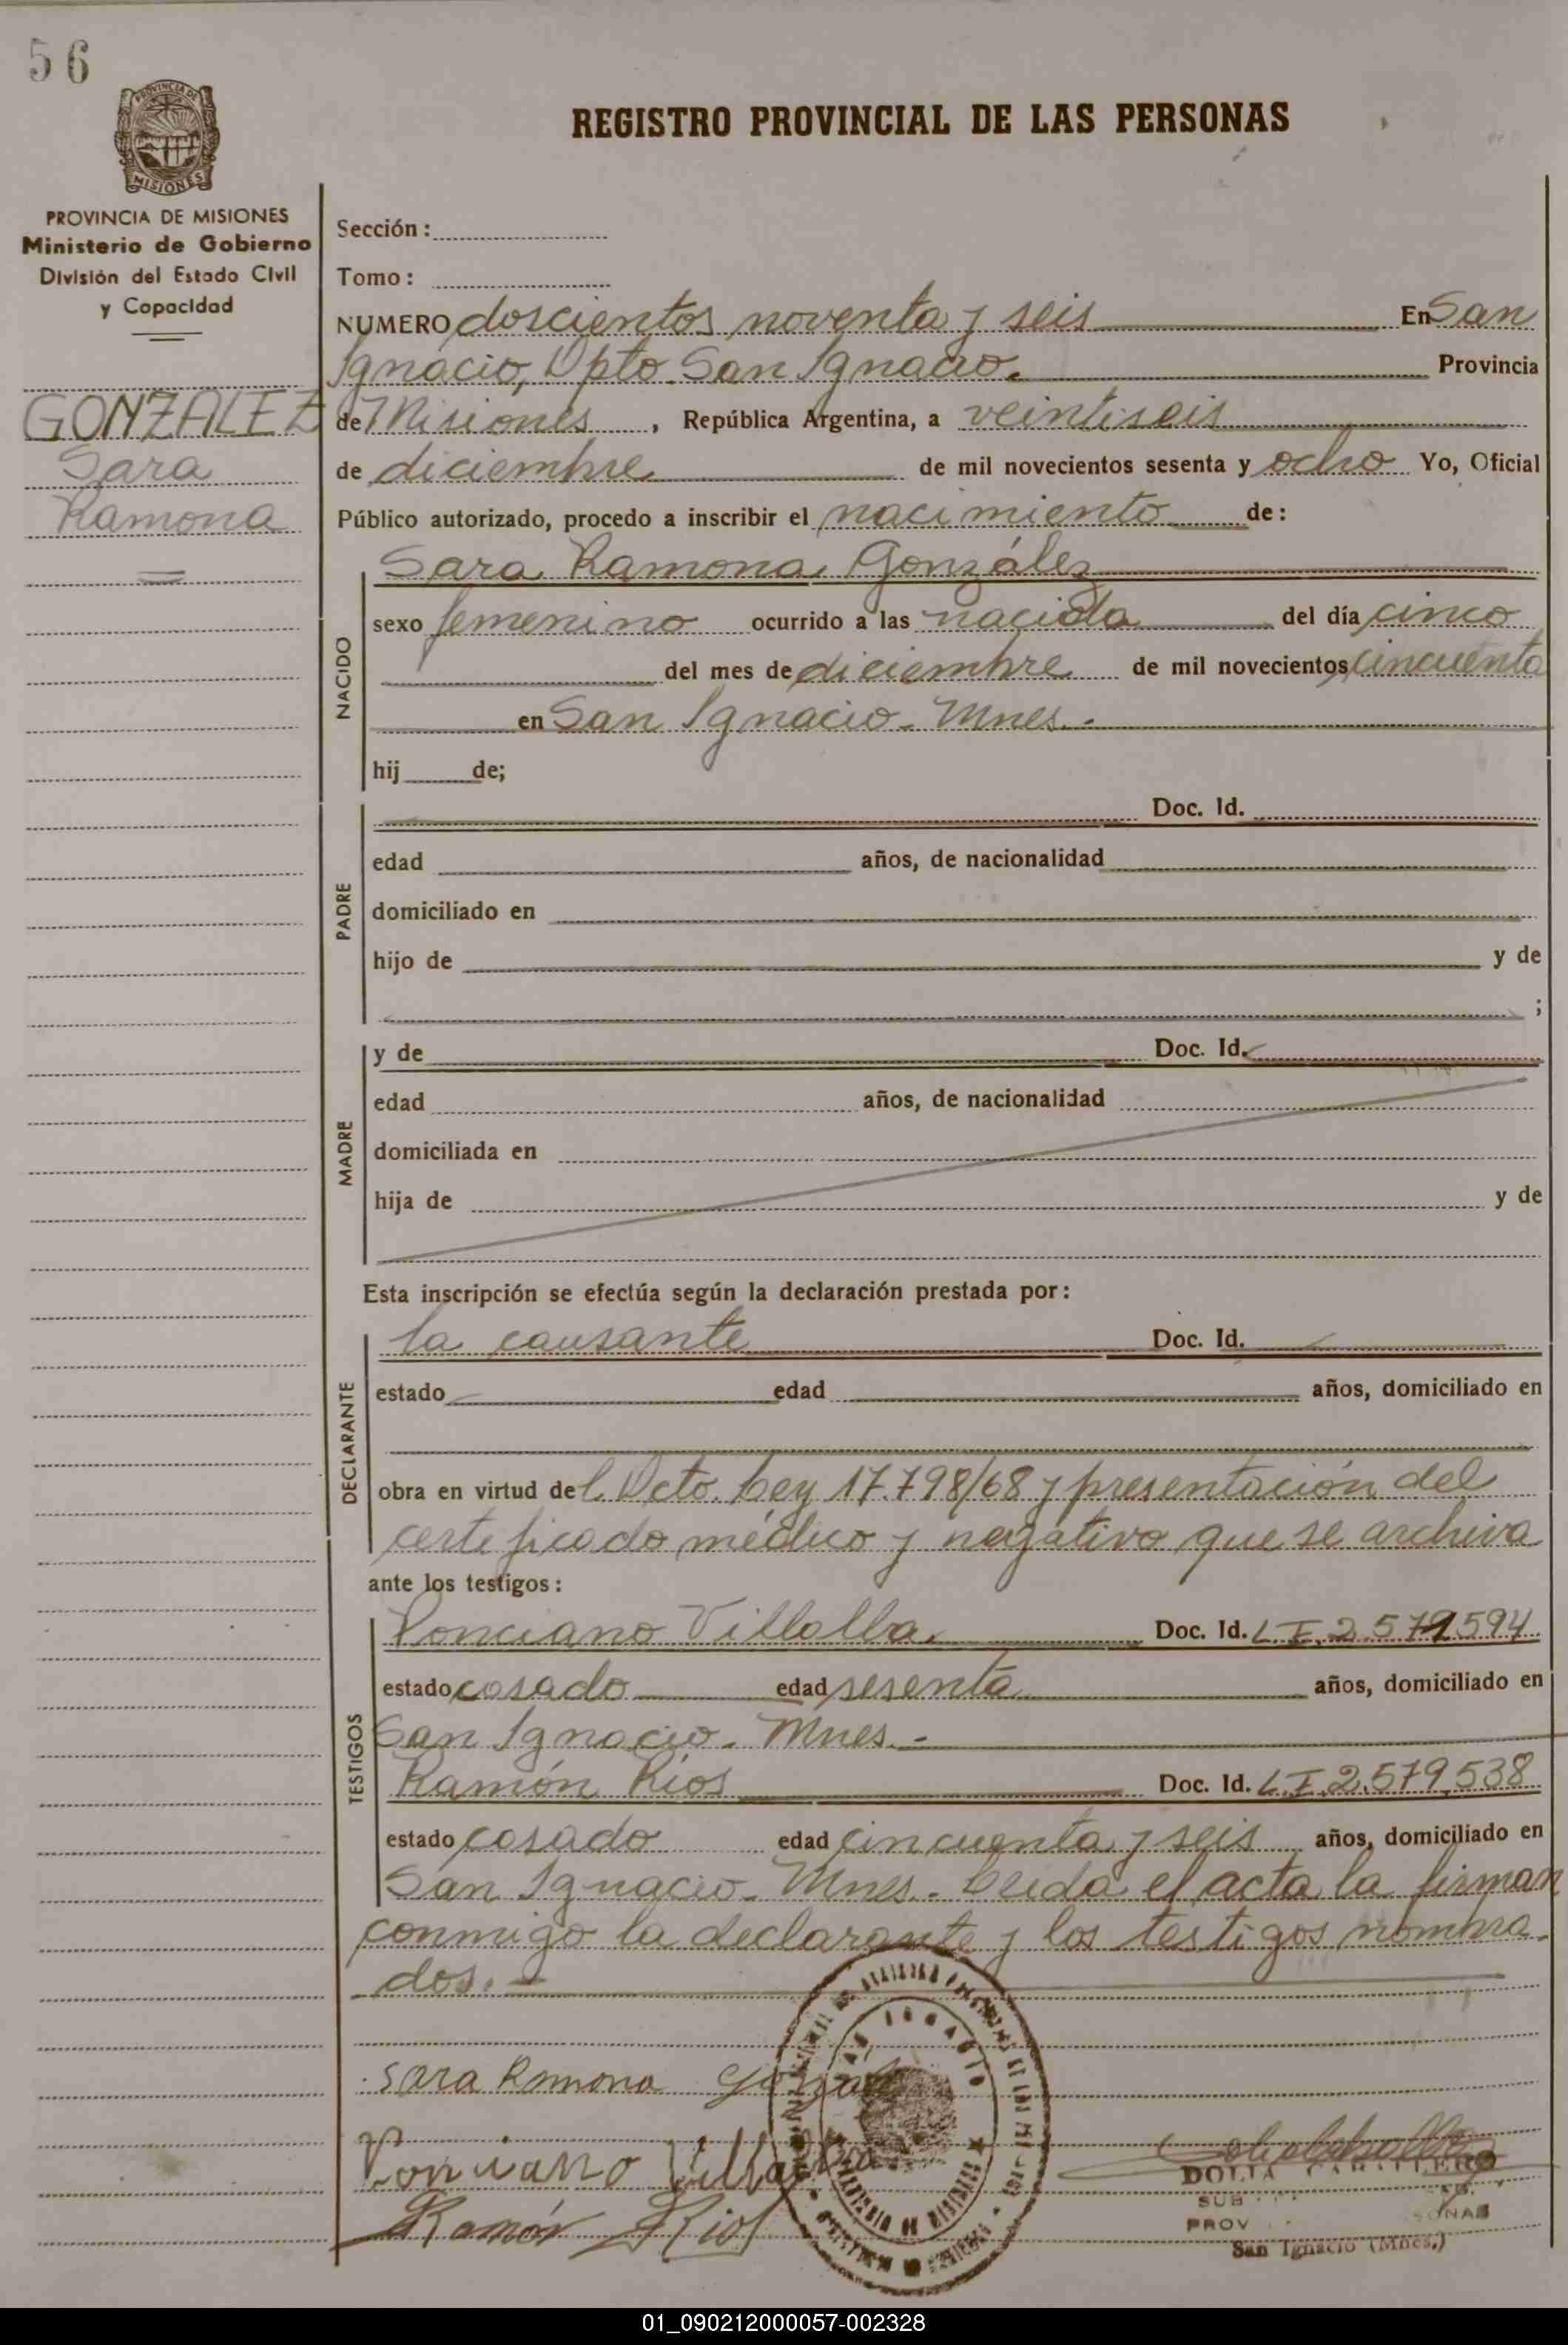 56
PROVINCIA DE
MISIONES
PROVINCIA DE MISIONES
Ministerio de Gobierno
División del Estado Civil
y Capacidad
GONZALEZ
Sara
Ramona
REGISTRO PROVINCIAL DE LAS PERSONAS
Sección:
Tomo:
NUMERO doscientos noventa y seis En San
Ignacio, Dpto. San Ignacio. Provincia
de Misiones, República Argentina, a veintiseis
de diciembre de mil novecientos sesenta y ocho Yo, Oficial
Público autorizado, procedo a inscribir el nacimiento de:
Sara Ramona González
NACIDO
sexo femenino ocurrido a las nacida del día cinco
del mes de diciembre de mil novecientos cincuenta
en San Ignacio - Mnes.-
hij de;
PADRE
Doc. Id.
edad años, de nacionalidad
domiciliado en
hijo de y de
;
MADRE
y de Doc. Id.
edad años, de nacionalidad
domiciliada en
hija de y de
Esta inscripción se efectúa según la declaración prestada por:
DECLARANTE
la causante Doc. Id.
estado edad años, domiciliado en
obra en virtud del Dcto. Ley 17.798/68 y presentación del
certificado médico y negativo que se archiva
ante los testigos:
TESTIGOS
Ponciano Villalba. Doc. Id. L.I. 2.579594
estado casado edad sesenta años, domiciliado en
San Ignacio. Mnes.-
Ramón Ríos Doc. Id. L.I. 2.579.538
estado casado edad cincuenta y seis años, domiciliado en
San Ignacio. Mnes. Leida el acta la firman
conmigo la declarante y los testigos nombra-
dos.-
Sara Ramona
Ponciano Villalba
Ramón Ríos
SAN IGNACIO
CABALLERO
SUB
PROV
San Ignacio (Mnes.)
01_090212000057-002328